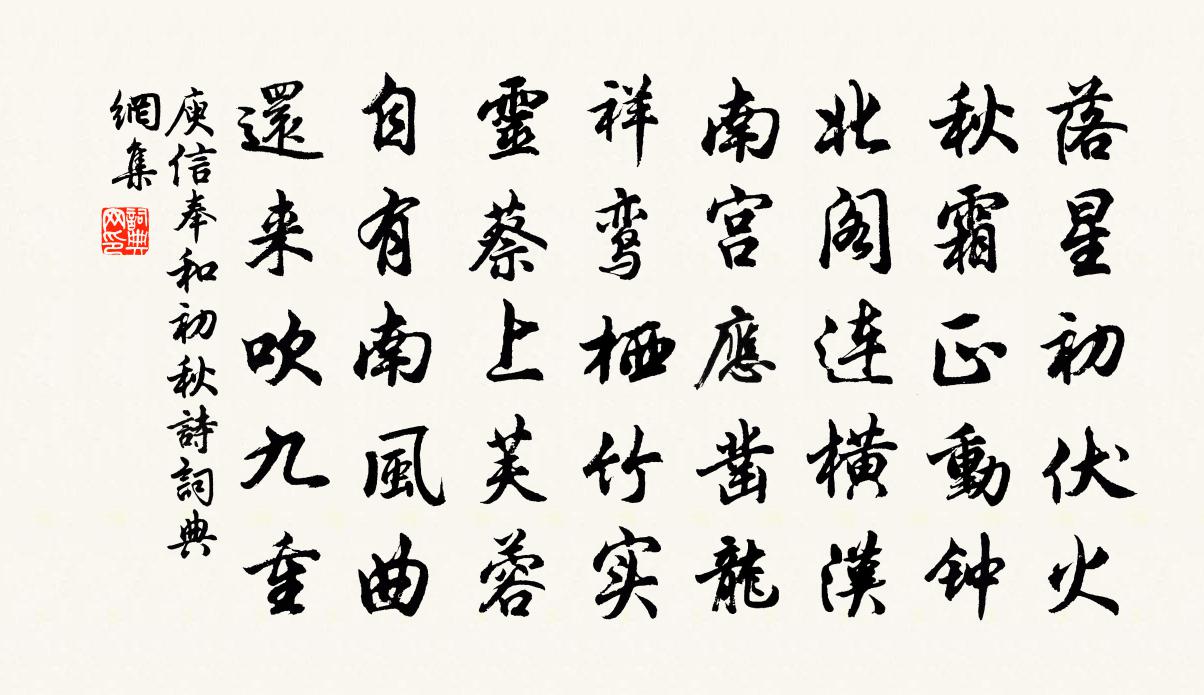 落星初伏火
秋霜正動钟
北阁連橫漢
南宫應凿龍
祥鸾栖竹实
靈蔡上芙蓉
自有南風曲
還来吹九重
庾信奉和初秋詩詞典
網集
詞典网印